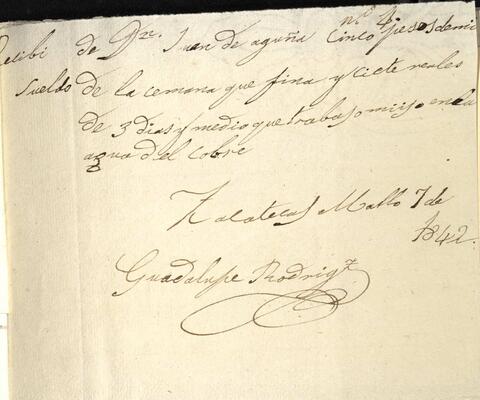 nº 4
Recibi de Dn. Juan de aguña Cinco pesos de mi
Sueldo de la cemana que fina y ciete reales
de 3 dias y medio que trabajo mi ijo en la
agua del cobre
Zacatecas Mallo 7 de
1842.
Guadalupe Rodrigz